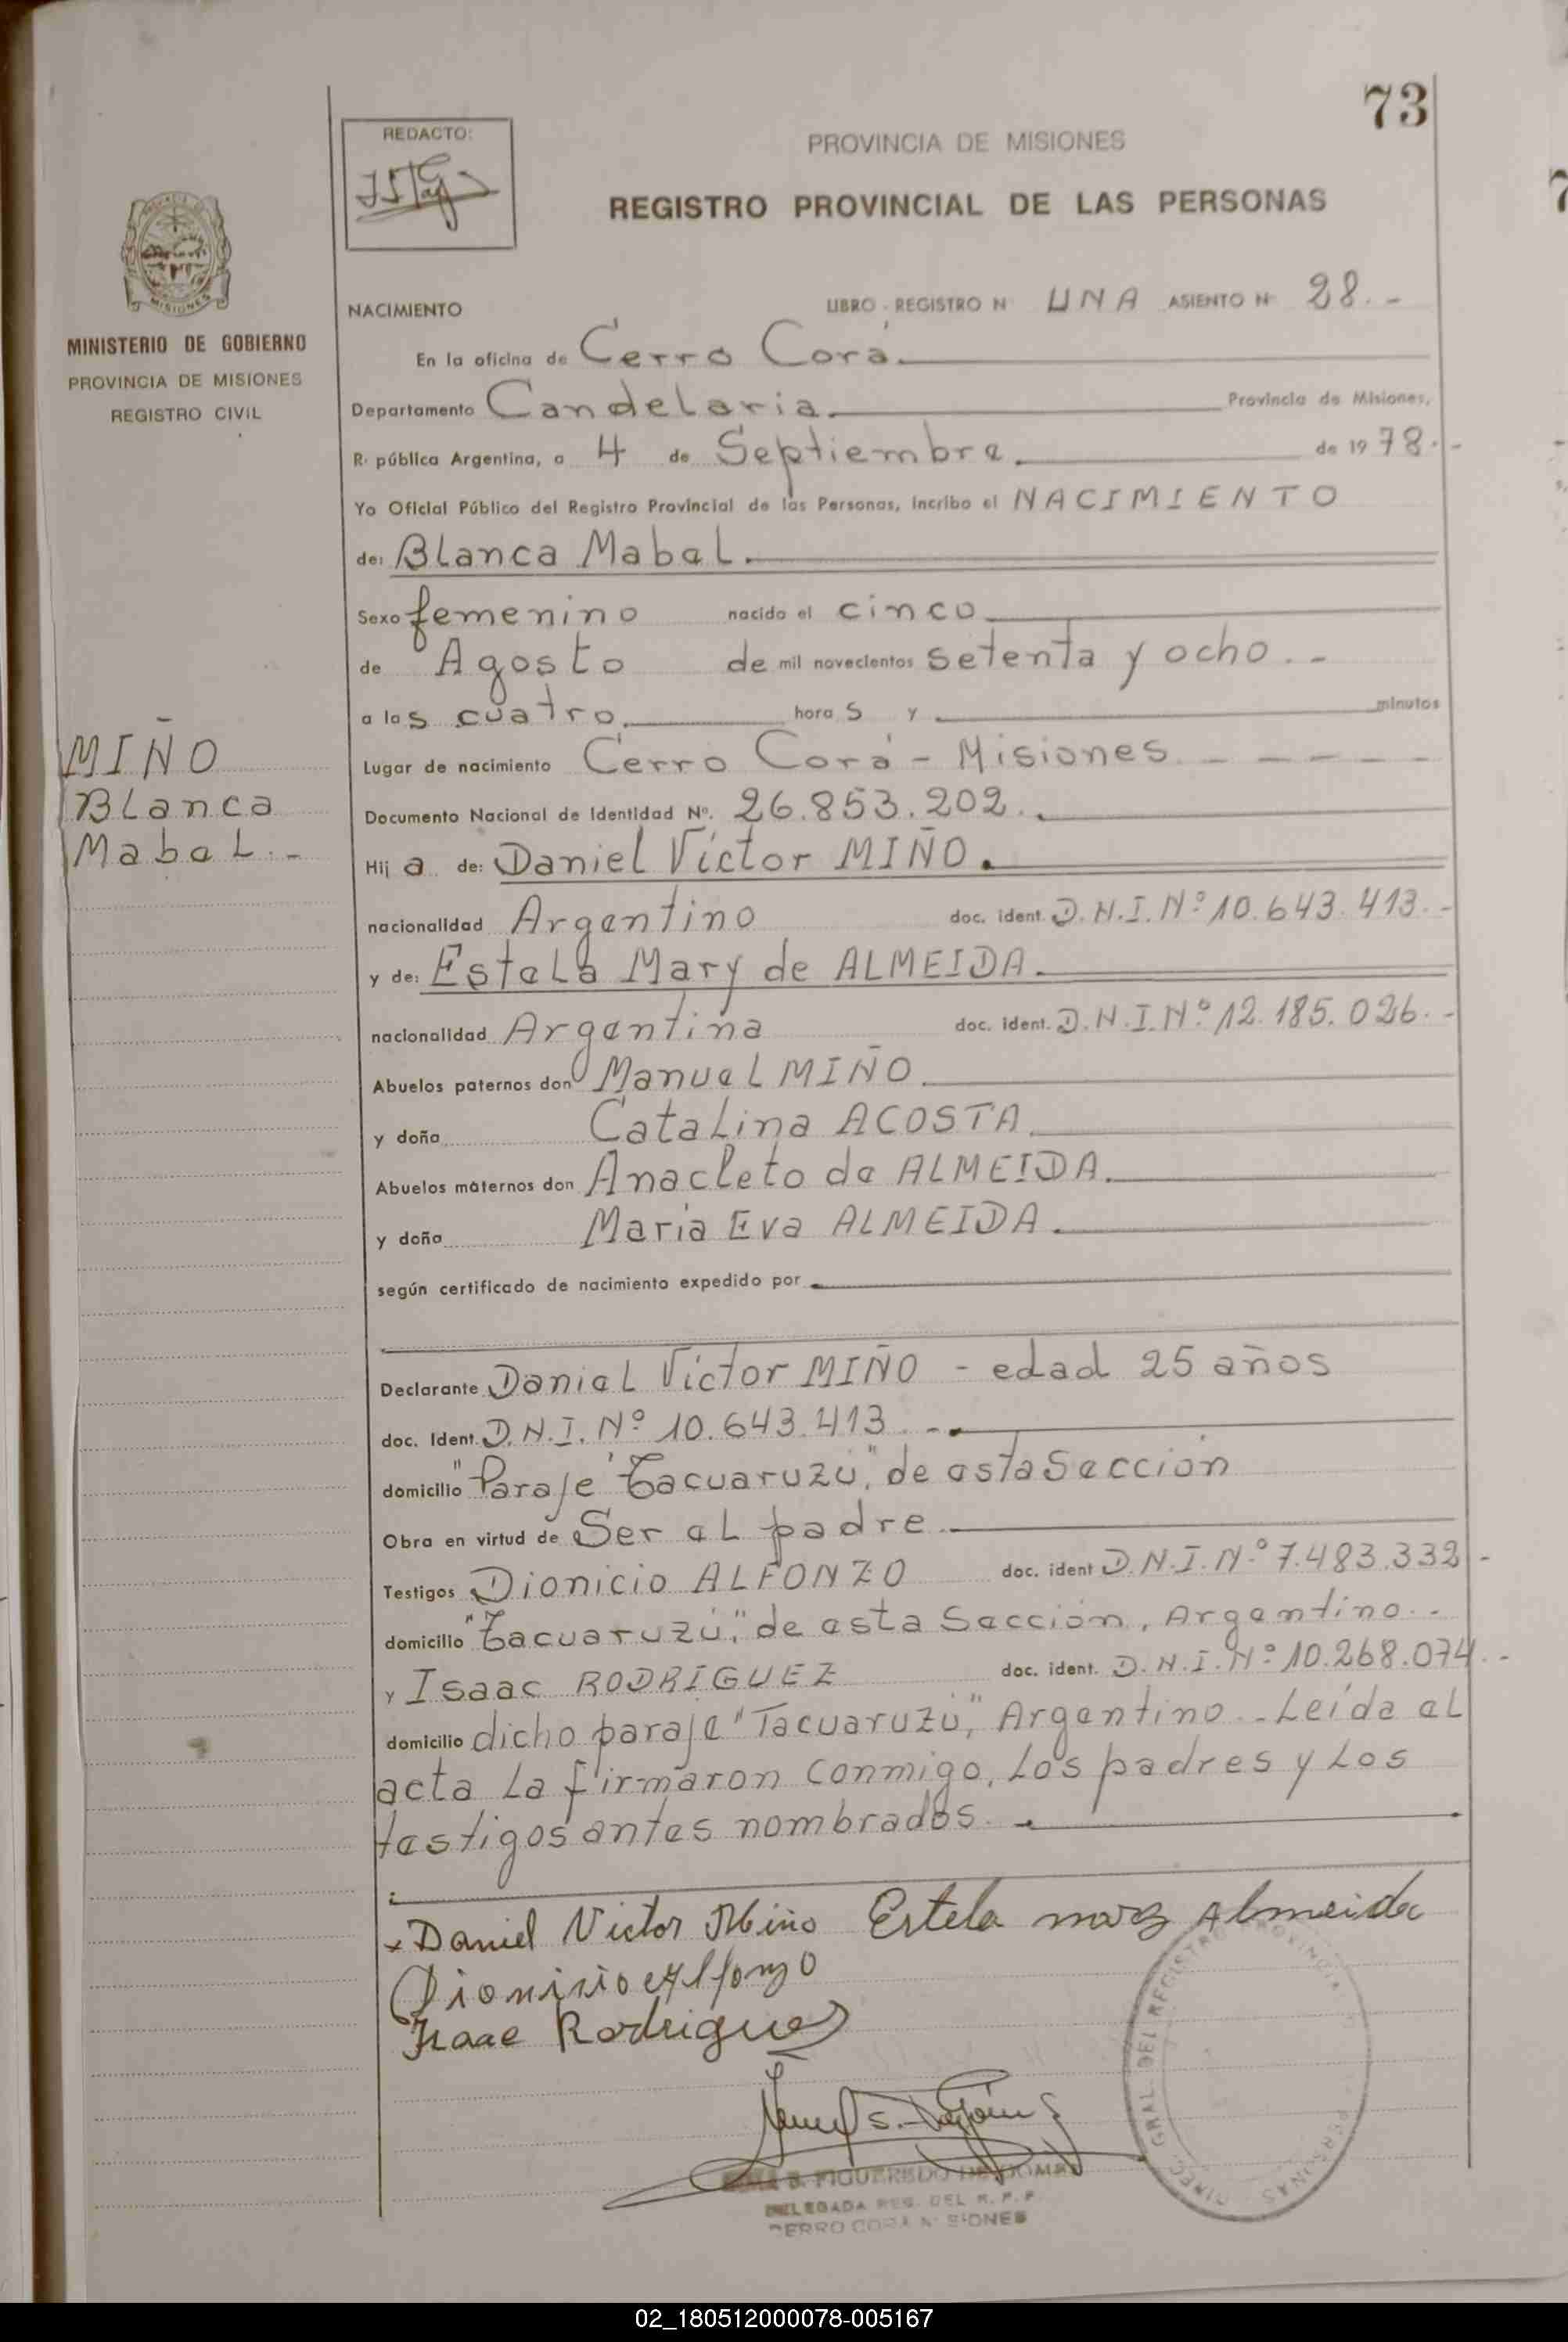 73
REDACTO:
PROVINCIA DE MISIONES
REGISTRO PROVINCIAL DE LAS PERSONAS
MISIONES
MINISTERIO DE GOBIERNO
PROVINCIA DE MISIONES
REGISTRO CIVIL
NACIMIENTO LIBRO - REGISTRO N UNA ASIENTO Nº 28.-
En la oficina de Cerro Corá
Departamento Candelaria. Provincia de Misiones,
R. pública Argentina, a 4 de Septiembre. de 1978.-
Yo Oficial Público del Registro Provincial de las Personas, incribo el NACIMIENTO
de: Blanca Mabel.
Sexo femenino nacido el cinco
de Agosto de mil novecientos setenta y ocho.-
a las cuatro. horas y minutos
MIÑO
Blanca
Mabel.-
Lugar de nacimiento Cerro Corá - Misiones - - - - -
Documento Nacional de Identidad Nº. 26.853.202.
Hija de: Daniel Víctor MIÑO.
nacionalidad Argentino doc. ident. D.N.I.Nº 10.643.413.-
y de: Estela Mary de ALMEIDA.
nacionalidad Argentina doc. ident. D.N.I.Nº 12.185.026.-
Abuelos paternos don Manuel MIÑO
y doña Catalina ACOSTA
Abuelos maternos don Anacleto de ALMEIDA.
y doña María Eva ALMEIDA.
según certificado de nacimiento expedido por
Declarante Daniel Víctor MIÑO - edad 25 años
doc. Ident. D.N.I.Nº 10.643.413.-
domicilio "Paraje Tacuaruzú", de esta Sección
Obra en virtud de Ser el padre
Testigos Dionicio ALFONZO doc. ident D.N.I.Nº 7.483.332-
domicilio "Tacuaruzú", de esta Sección, Argentino.-
y Isaac RODRÍGUEZ doc. ident. D.N.I.Nº 10.268.074.-
domicilio dicho paraje "Tacuaruzú", Argentino.-Leída el
acta la firmaron conmigo, los padres y los
testigos antes nombrados.-
Daniel Victor Miño Estela mary Almeida
Dionisio Alfonzo
Isaac Rodriguez
S. FIGUEREDO DE
DELEGADA REG. DEL R. P. P.
CERRO CORA MISIONES
DIREC. GRAL. DEL REGISTRO PROVINCIAL PERSONAS
02_180512000078-005167